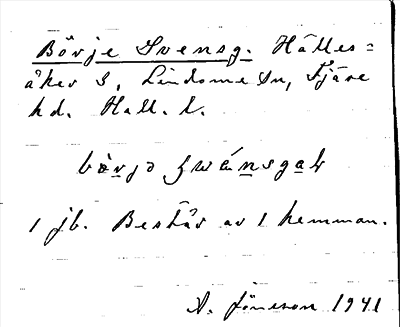 Börje Svensg. Hälles=
åker S, Lindome sn, Fjäre
hd. Hall. l.
1 jb. Består av 1 hemman.
A. Jönsson 1941